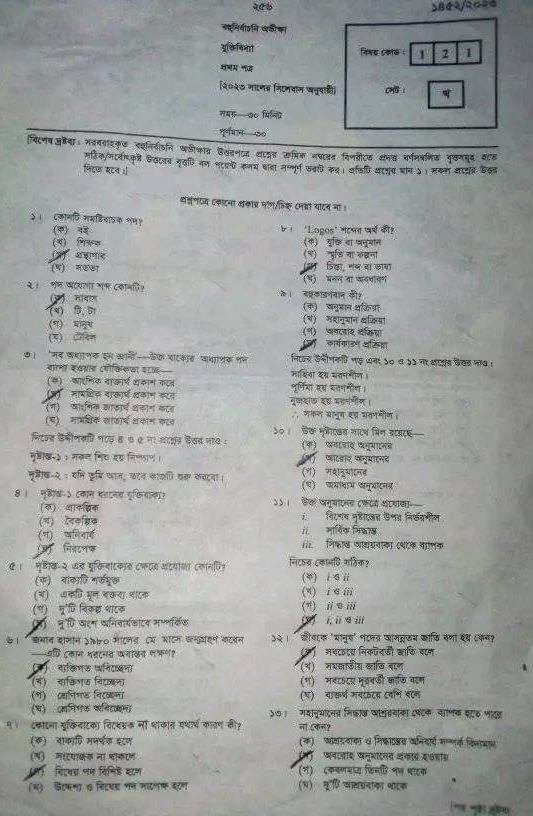 ২৫৬
বহুনির্বাচনি অভীক্ষা
যুক্তিবিদ্যা
প্রথম পত্র
[২০২৩ সালের সিলেবাস অনুযায়ী]
সময়—৩০ মিনিট
পূর্ণমান—৩০
বিষয় কোড : 1 2 1
সেট : খ
[বিশেষ দ্রষ্টব্য : সরবরাহকৃত বহুনির্বাচনি অভীক্ষার উত্তরপত্রে প্রশ্নের ক্রমিক নম্বরের বিপরীতে প্রদত্ত বর্ণসংবলিত বৃত্তসমূহ হতে
সঠিক/সর্বোৎকৃষ্ট উত্তরের বৃত্তটি বল পয়েন্ট কলম দ্বারা সম্পূর্ণ ভরাট কর। প্রতিটি প্রশ্নের মান ১। সকল প্রশ্নের উত্তর
দিতে হবে।]
প্রশ্নপত্রে কোনো প্রকার দাগ/চিহ্ন দেয়া যাবে না।
১। কোনটি সমষ্টিবাচক পদ?
(ক) বই
(খ) শিক্ষক
গ্রন্থাগার
(ঘ) সততা
২। পদ অযোগ্য শব্দ কোনটি?
সাবাস
(খ) টি, টা
(গ) মানুষ
(ঘ) টেবিল
৩। 'সব অধ্যাপক হন জ্ঞানী'—উক্ত বাক্যের অধ্যাপক পদ
ব্যাপ্য হওয়ার যৌক্তিকতা হচ্ছে—
(ক) আংশিক ব্যক্ত্যর্থ প্রকাশ করে
সামগ্রিক ব্যক্ত্যর্থ প্রকাশ করে
(গ) আংশিক জাত্যর্থ প্রকাশ করে
(ঘ) সামগ্রিক জাত্যর্থ প্রকাশ করে
নিচের উদ্দীপকটি পড়ে ৪ ও ৫ নং প্রশ্নের উত্তর দাও :
দৃষ্টান্ত-১ : সকল শিশু হয় নিষ্পাপ।
দৃষ্টান্ত-২ : যদি তুমি আস, তবে কাজটি শুরু করবো।
৪। দৃষ্টান্ত-১ কোন ধরনের যুক্তিবাক্য?
(ক) প্রাকল্পিক
(খ) বৈকল্পিক
(গ) অনিবার্য
নিরপেক্ষ
৫। দৃষ্টান্ত-২ এর যুক্তিবাক্যের ক্ষেত্রে প্রযোজ্য কোনটি?
(ক) বাক্যটি শর্তমুক্ত
(খ) একটি মূল বক্তব্য থাকে
(গ) দু'টি বিকল্প থাকে
দু'টি অংশ অনিবার্যভাবে সম্পর্কিত
৬। জনাব হাসান ১৯৮০ সালের মে মাসে জন্মগ্রহণ করেন
—এটি কোন ধরনের অবান্তর লক্ষণ?
ব্যক্তিগত অবিচ্ছেদ্য
(খ) ব্যক্তিগত বিচ্ছেদ্য
(গ) শ্রেণিগত বিচ্ছেদ্য
(ঘ) শ্রেণিগত অবিচ্ছেদ্য
৭। কোনো যুক্তিবাক্যে বিধেয়ক না থাকার যথার্থ কারণ কী?
(ক) বাক্যটি সদর্থক হলে
(খ) সংযোজক না থাকলে
বিধেয় পদ বিশিষ্ট হলে
(ঘ) উদ্দেশ্য ও বিধেয় পদ ব্যাপক হলে
৮। 'Logos' শব্দের অর্থ কী?
(ক) যুক্তি বা অনুমান
(খ) স্মৃতি বা কল্পনা
চিন্তা, শব্দ বা ভাষা
(ঘ) মনন বা অবধারণ
৯। বহুকারণবাদ কী?
(ক) অনুমান প্রক্রিয়া
(খ) সহানুমান প্রক্রিয়া
(গ) অবরোহ প্রক্রিয়া
কার্যকারণ প্রক্রিয়া
নিচের উদ্দীপকটি পড় এবং ১০ ও ১১ নং প্রশ্নের উত্তর দাও :
সাহিবা হয় মরণশীল।
পূর্ণিমা হয় মরণশীল।
নুজহাত হয় মরণশীল।
∴ সকল মানুষ হয় মরণশীল।
১০। উক্ত দৃষ্টান্তের সাথে মিল রয়েছে—
(ক) অবরোহ অনুমানের
আরোহ অনুমানের
(গ) সহানুমানের
(ঘ) অমাধ্যম অনুমানের
১১। উক্ত অনুমানের ক্ষেত্রে প্রযোজ্য—
i. বিশেষ দৃষ্টান্তের উপর নির্ভরশীল
ii. সার্বিক সিদ্ধান্ত
iii. সিদ্ধান্ত আশ্রয়বাক্য থেকে ব্যাপক
নিচের কোনটি সঠিক?
(ক) i ও ii
(খ) i ও iii
(গ) ii ও iii
i, ii ও iii
১২। জীবকে 'মানুষ' পদের আসন্নতম জাতি বলা হয় কেন?
সবচেয়ে নিকটবর্তী জাতি বলে
(খ) সমজাতীয় জাতি বলে
(গ) সবচেয়ে দূরবর্তী জাতি বলে
(ঘ) ব্যক্ত্যর্থ সবচেয়ে বেশি বলে
১৩। সহানুমানের সিদ্ধান্ত আশ্রয়বাক্য থেকে ব্যাপক হতে পারে
না কেন?
(ক) আশ্রয়বাক্য ও সিদ্ধান্তের অনিবার্য সম্পর্ক বিদ্যমান
অবরোহ অনুমানের প্রকার হওয়ায়
(গ) কেবলমাত্র তিনটি পদ থাকে
(ঘ) দু'টি আশ্রয়বাক্য থাকে